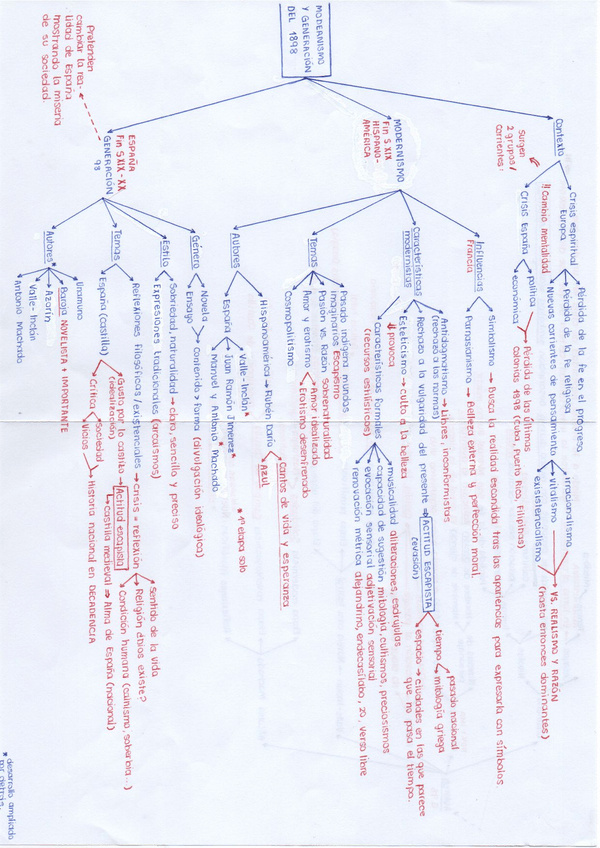 MODERNISMO
Y GENERACIÓN
DEL 1898
Contexto
Surgen
2 grupos/
corrientes:
Crisis espiritual
Europa
Pérdida de la fe en el progreso
Pérdida de la fe religiosa
Nuevas corrientes de pensamiento
irracionalismo
vitalismo
existencialismo
VS. REALISMO Y RAZÓN
(hasta entonces dominantes)
!! Cambio mentalidad
Crisis España
política
económica
Pérdida de las últimas
colonias 1898 (Cuba, Puerto Rico, Filipinas)
MODERNISMO
Fin S XIX
HISPANO-
AMÉRICA
Influencias
Francia
Simbolismo → Busca la realidad escondida tras las apariencias para expresarla con símbolos
Parnasianismo → Belleza externa y perfección moral.
Características
modernistas
Antidogmatismo → Libres, inconformistas
(rechazo a las normas)
Rechazo a la vulgaridad del presente → ACTITUD ESCAPISTA
(evasión)
tiempo
pasado nacional
mitología griega
espacio → ciudades en las que parece
que no pasa el tiempo.
Esteticismo → culto a la belleza
provoca
Características formales
(recursos estilísticos)
musicalidad aliteraciones, esdrújulas
capacidad de sugestión mitología, cultismos, preciosismos
evocación sensorial adjetivación sensorial
renovación métrica alejandrino, endecasílabo, 20, verso libre
Temas
Pasado indígena mundos
imaginarios Escapismo
Pasión vs Razón Sobrenaturalidad
Amor y erotismo
Amor idealizado
Erotismo desenfrenado
Cosmopolitismo
Autores
Hispanoamérica → Rubén Darío
Cantos de vida y esperanza
AZUL
España
Valle-Inclán*
Juan Ramón Jiménez*
Manuel y Antonio Machado
* 1ª etapa solo
ESPAÑA
Fin S XIX - XX
GENERACIÓN
98
Pretenden
cambiar la rea-
lidad de España
mostrando la miseria
de su sociedad.
Género
Novela
Ensayo
Contenido > forma (divulgación ideológica)
Estilo
Sobriedad, naturalidad → claro, sencillo y preciso
Expresiones tradicionales (arcaismos)
Temas
Reflexiones filosóficas/existenciales → crisis = reflexión
Sentido de la vida
Religión ¿Dios existe?
Condición humana (cainismo, soberbia...)
España (castilla)
Gusto por lo castizo → Actitud escapista
(idealización)
castilla medieval → Alma de España (nacional)
Crítica
Sociedad
Vicios
Historia nacional en DECADENCIA
Autores
Unamuno
Baroja NOVELISTA + IMPORTANTE
Azorín
Valle-Inclán
Antonio Machado
* desarrollo ampliado
por detrás.